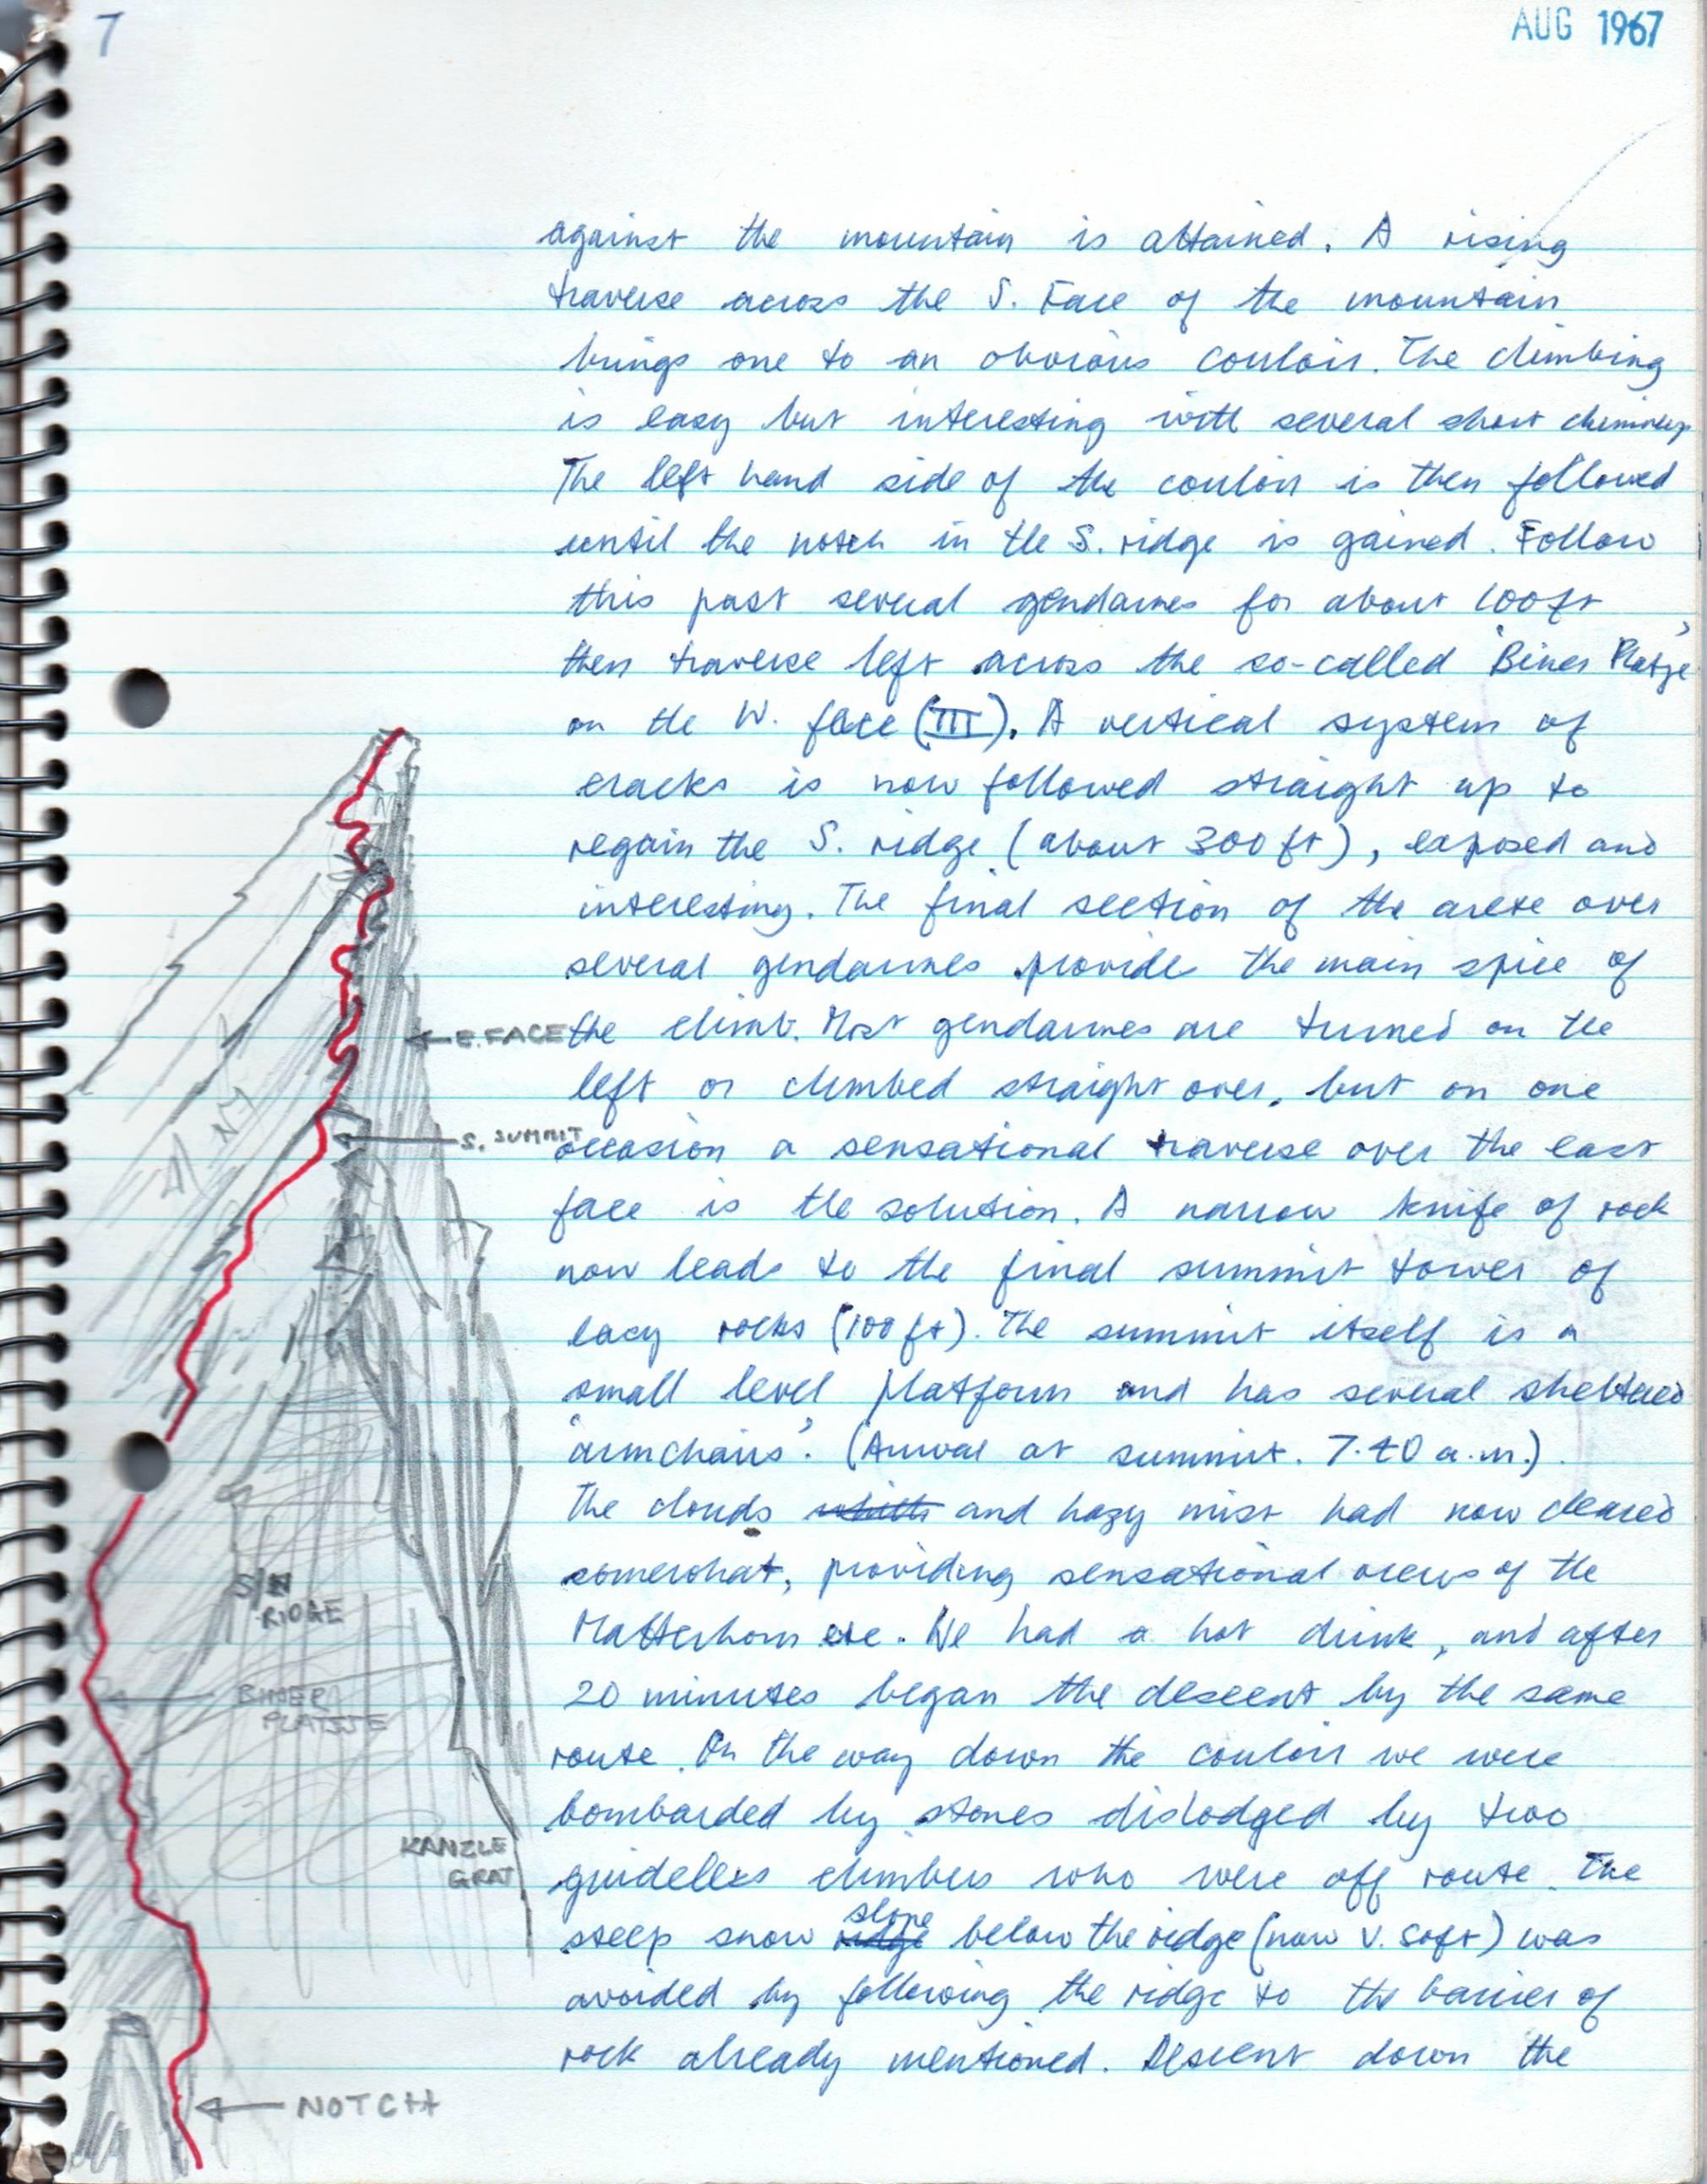 7
AUG 1967
against the mountain is attained. A rising
traverse across the S. Face of the mountain
brings one to an obvious couloir. The climbing
is easy but interesting with several short chimneys
The left hand side of the couloir is then followed
until the notch in the S. ridge is gained. Follow
this past several gendarmes for about 100ft
then traverse left across the so-called 'Biner Platze'
on the W. face (III). A vertical system of
cracks is now followed straight up to
regain the S. ridge (about 300 ft), exposed and
interesting. The final section of the arete over
several gendarmes provide the main spice of
the climb. Most gendarmes are turned on the
left or climbed straight over, but on one
occasion a sensational traverse over the east
face is the solution. A narrow knife of rock
now leads to the final summit tower of
easy rocks (100 ft). The summit itself is a
small level platform and has several sheltered
'armchairs'. (Arrival at summit. 7.40 a.m.)
The clouds and hazy mist had now cleared
somewhat, providing sensational views of the
Matterhorn etc. We had a hot drink, and after
20 minutes began the descent by the same
route. On the way down the couloir we were
bombarded by stones dislodged by two
guideless climbers who were off route. The
steep snow slope below the ridge (now v. soft) was
avoided by following the ridge to the barrier of
rock already mentioned. Descent down the
E. FACE
S. SUMMIT
RIDGE
BINER
PLATSJE
KANZLE
GRAT
NOTCH